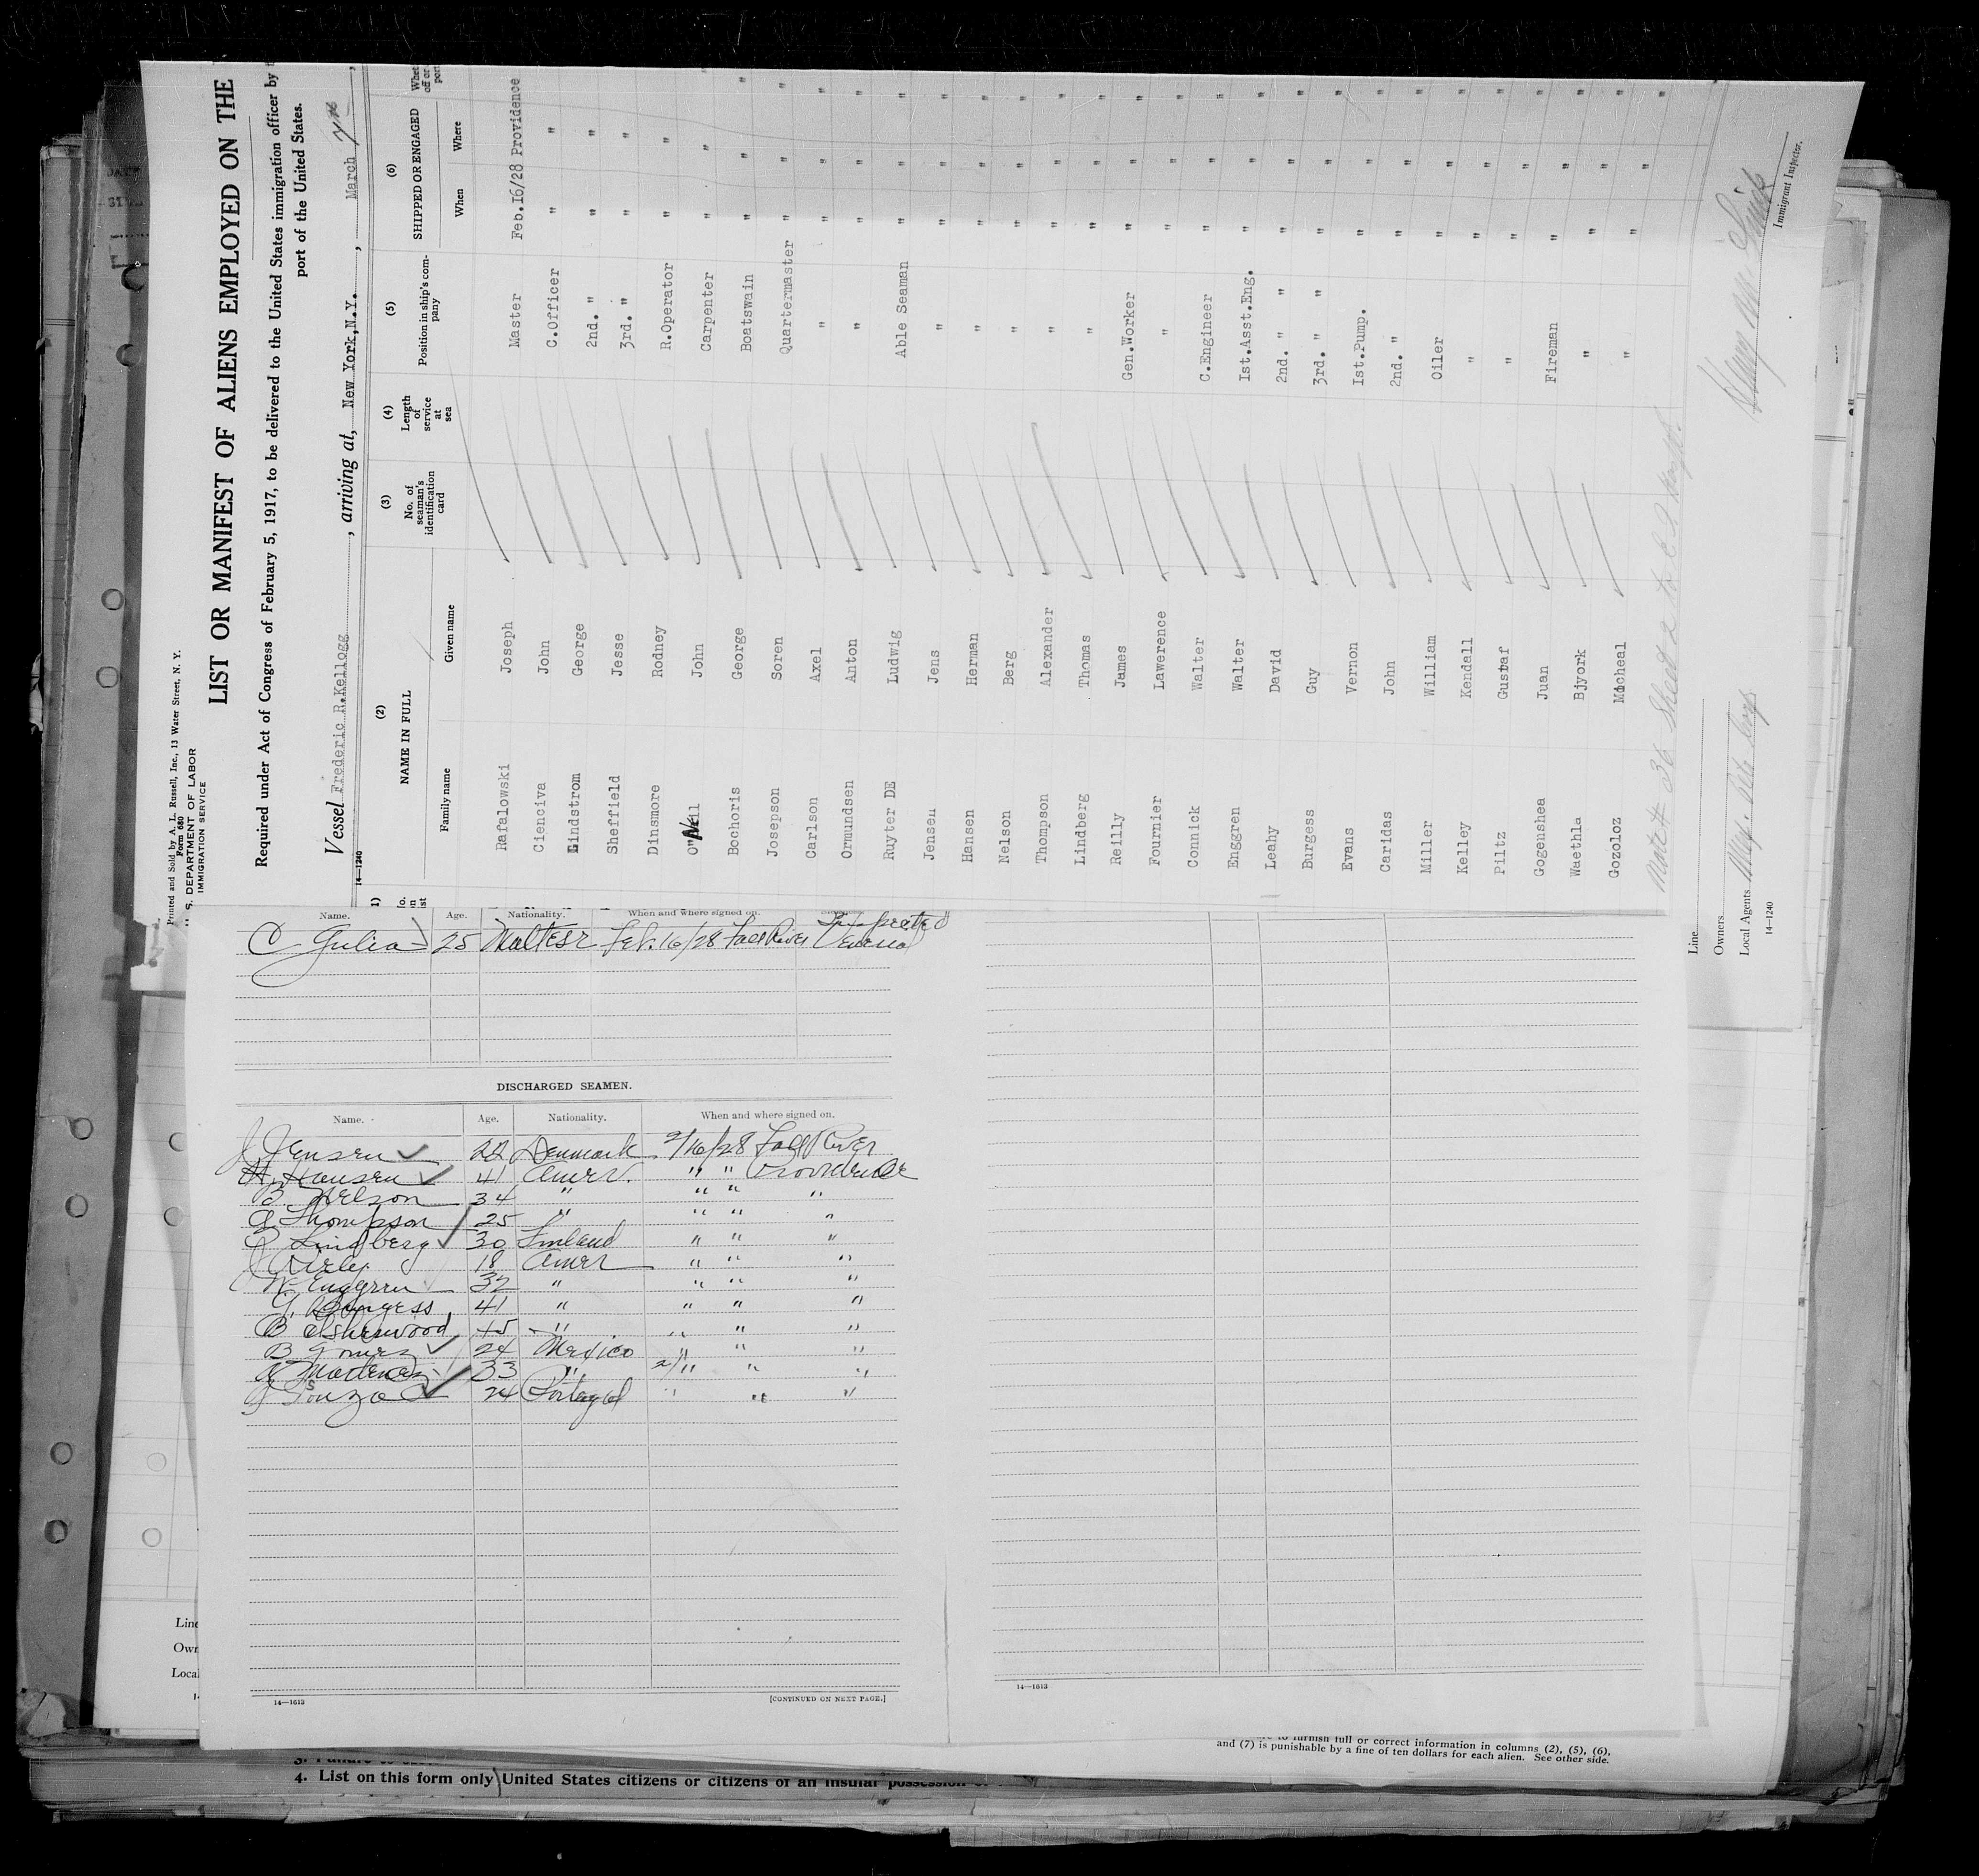 Printed and Sold by A. L. Russell, Inc., 13 Water Street, N. Y.
Form 680
U. S. DEPARTMENT OF LABOR
IMMIGRATION SERVICE
LIST OR MANIFEST OF ALIENS EMPLOYED ON THE
Required under Act of Congress of February 5, 1917, to be delivered to the United States immigration officer by
port of the United States.
Vessel Frederic R.Kellogg, arriving at, New York,N.Y., March 7th
14—1240
(2) (3) (4) (5) (6)
NAME IN FULL No. of seaman's identification card Length of service at sea Position in ship's company SHIPPED OR ENGAGED
Family name Given name When Where
Rafalowski Joseph Master Feb.16/28 Providence
Cienciva John C.Officer " "
Lindstrom George 2nd. " " "
Sheffield Jesse 3rd. " " "
Dinsmore Rodney R.Operator " "
O'Neil John Carpenter " "
Bochoris George Boatswain " " "
Josepson Soren Quartermaster " " "
Carlson Axel " " " "
Ormundsen Anton " " " "
Ruyter DE Ludwig Able Seaman " " "
Jensen Jens " " " "
Hansen Herman " " " "
Nelson Berg " " " "
Thompson Alexander " " " "
Lindberg Thomas " " " "
Reilly James Gen.Worker " " "
Fournier Lawerence " " " "
Connick Walter C.Engineer " " "
Enggren Walter Ist.Asst.Eng. " " "
Leahy David 2nd. " " " " "
Burgess Guy 3rd. " " " " "
Evans Vernon Ist.Pump. " " "
Caridas John 2nd. " " " "
Miller William Oiler " " "
Kelley Kendall " " " "
Piltz Gustaf " " " "
Gogenshea Juan Fireman " " "
Waethla Bjyork " " " "
Gozoloz Micheal " " " "
Line
Owners
Local Agents
14—1240
Immigrant Inspector.
Name. Age. Nationality. When and where signed on.
C Gulea 25 Maltese Feb. 16/28 Fall River
DISCHARGED SEAMEN.
Name. Age. Nationality. When and where signed on.
J Jensen 22 Denmark 2/16/28 Fall River
H. Hansen 41 Amer. " " Providence
B. Nelson 34 " " " "
A Thompson 25 " " " "
Lindberg 30 Finland " " "
18 Amer " " "
W Enggren 32 " " " "
G. Burgess 41 " " " "
B Isherwood 45 " " " "
B Gomez 24 Mexico " " "
33 " 2/" " "
Souza 24 Portugal " " "
14—1613
[CONTINUED ON NEXT PAGE.]
14—1613
to furnish full or correct information in columns (2), (5), (6),
and (7) is punishable by a fine of ten dollars for each alien. See other side.
4. List on this form only United States citizens or citizens of an insular possession